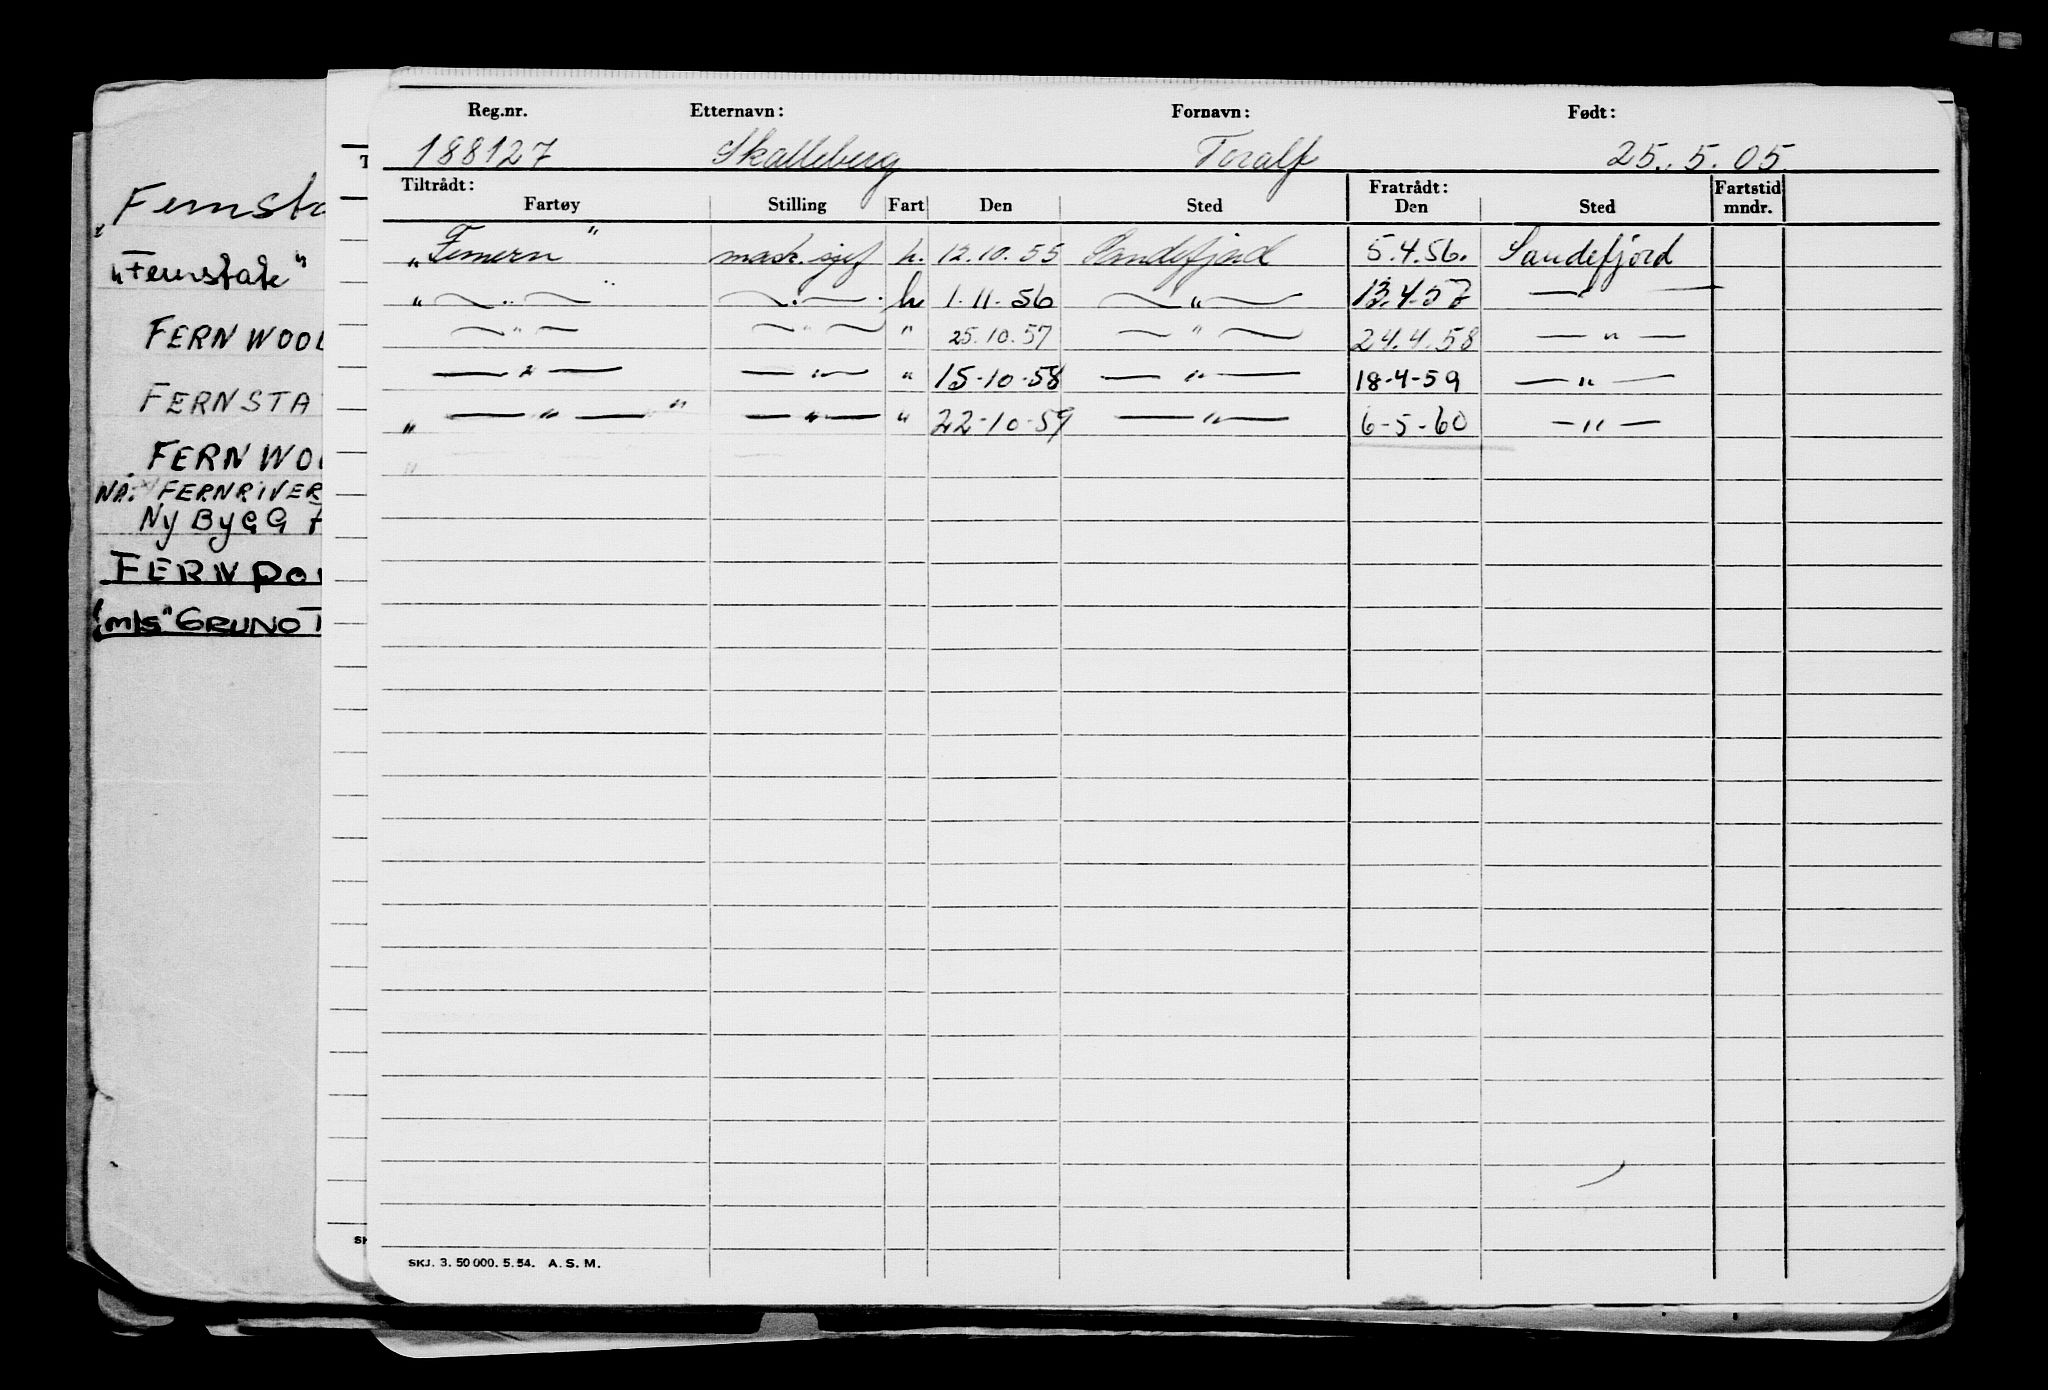 Reg.nr. Etternavn: Fornavn: Født:
188127 Skalleberg Toralf 25.5.05.
Tiltrådt: Fratrådt: Fartstid
Fartøy Stilling Fart Den Sted Den Sted mndr.
„Femern" h. 12.10.55 Sandefjord 5.4.56. Sandefjord
" — " — — " — h 1.11.56 — " — 13.4.57 — " —
— " — — " — " 25.10.57 — " — 24.4.58 — " —
— " — — " — " 15-10-58 — " — 18-4-59 — " —
„ — " — " — " — " 22-10-59 — " — 6-5-60 — " —
SKJ. 3. 50 000. 5. 54. A. S. M.
„Fernsta
„Fernstate"
FERNWOO
FERNSTA
FERNWO
NA. FERNRIVER
NyBYGG
FERN
m/s "GRUNO